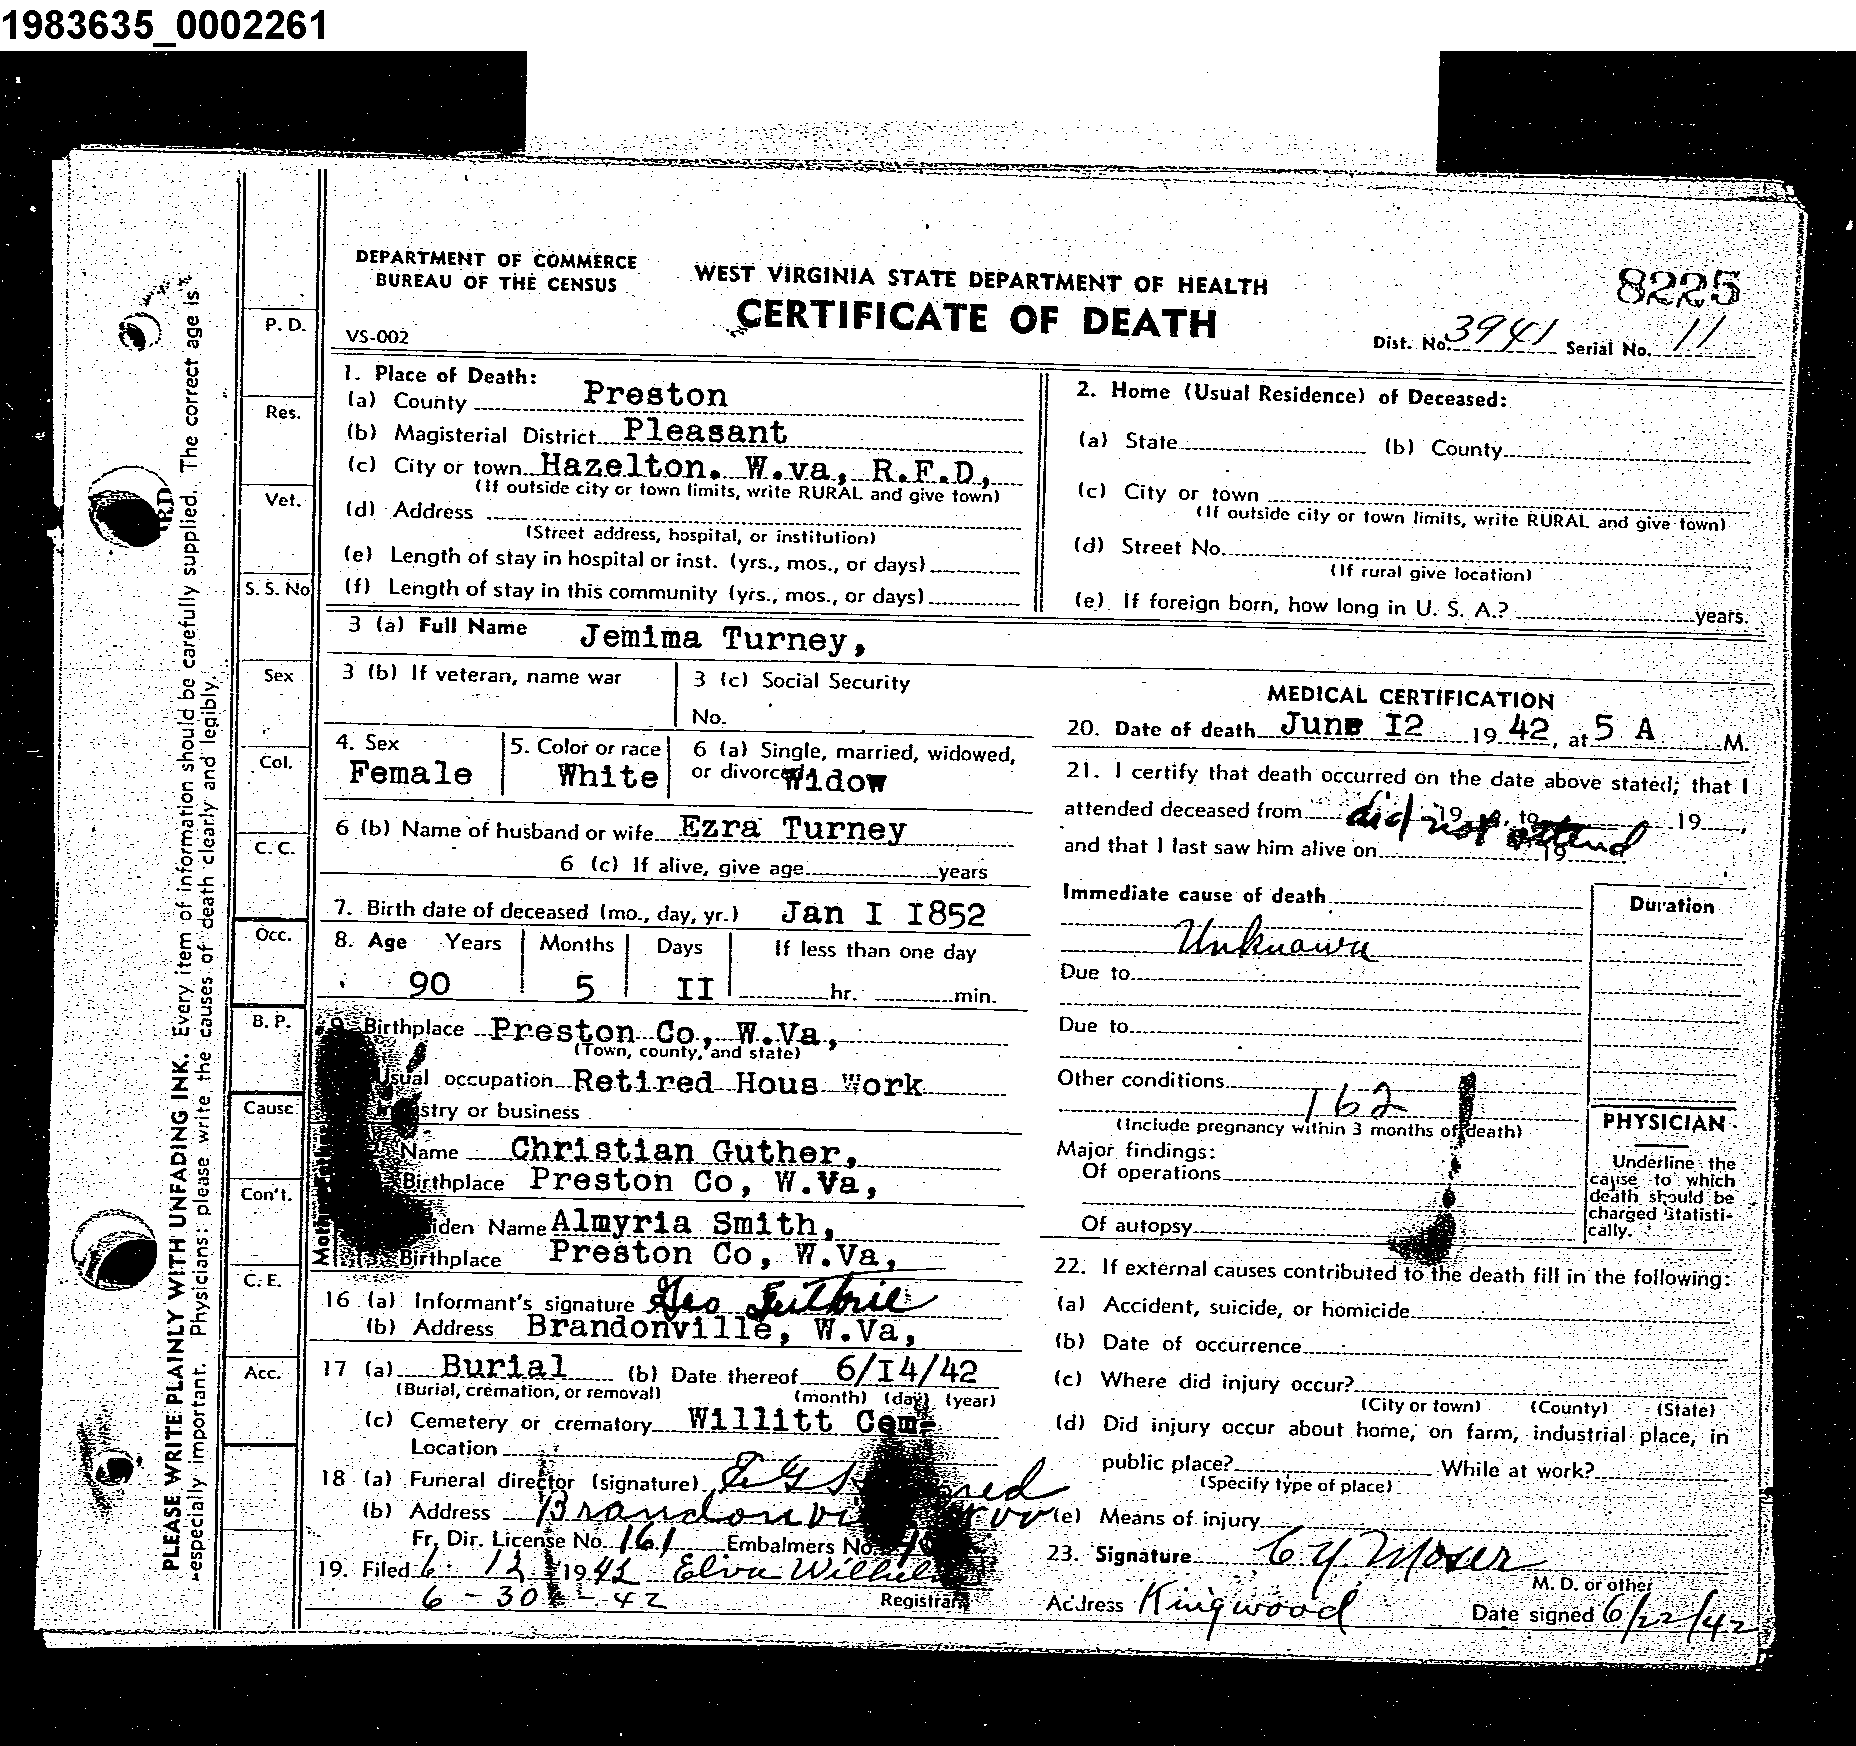 1983635_0002261
DEPARTMENT OF COMMERCE
BUREAU OF THE CENSUS
WEST VIRGINIA STATE DEPARTMENT OF HEALTH
CERTIFICATE OF DEATH
8225
VS-002
Dist. No. 3941 Serial No. 11
PLEASE WRITE PLAINLY WITH UNFADING INK. Every item of information should be carefully supplied. The correct age is
especially important. Physicians: please write the causes of death clearly and legibly.
P. D.
Res.
Vet.
S. S. No
Sex
Col.
C. C.
Occ.
B. P.
Cause
Con't.
C. E.
Acc.
1. Place of Death:
(a) County Preston
(b) Magisterial District Pleasant
(c) City or town Hazelton. W.va, R.F.D,
(If outside city or town limits, write RURAL and give town)
(d) Address
(Street address, hospital, or institution)
(e) Length of stay in hospital or inst. (yrs., mos., or days)
(f) Length of stay in this community (yrs., mos., or days)
2. Home (Usual Residence) of Deceased:
(a) State (b) County
(c) City or town
(If outside city or town limits, write RURAL and give town)
(d) Street No.
(If rural give location)
(e) If foreign born, how long in U. S. A.? years.
3 (a) Full Name Jemima Turney,
3 (b) If veteran, name war
3 (c) Social Security
No.
4. Sex
Female
5. Color or race
White
6 (a) Single, married, widowed,
or divorced Widow
6 (b) Name of husband or wife Ezra Turney
6 (c) If alive, give age years
7. Birth date of deceased (mo., day, yr.) Jan I I852
8. Age Years Months Days If less than one day
90 5 II hr. min.
9. Birthplace Preston Co, W.Va,
(Town, county, and state)
Usual occupation Retired Hous Work
stry or business
Name Christian Guther,
Birthplace Preston Co, W.Va,
iden Name Almyria Smith,
Birthplace Preston Co, W.Va,
16 (a) Informant's signature Geo Guthrie
(b) Address Brandonville, W.Va,
17 (a) Burial (b) Date thereof 6/I4/42
(Burial, cremation, or removal) (month) (day) (year)
(c) Cemetery or crematory Willitt Cem-
Location
18 (a) Funeral director (signature)
(b) Address
Fr. Dir. License No. 161 Embalmers No.
19. Filed 6 12 1942 Elva
6 - 30 - 42 Registrar
MEDICAL CERTIFICATION
20. Date of death June I2 19 42, at 5 A M.
21. I certify that death occurred on the date above stated; that I
attended deceased from did not attend 19 , to 19 ,
and that I last saw him alive on 19
Immediate cause of death
Unknown
Due to
Due to
Other conditions
162
(Include pregnancy within 3 months of death)
Major findings:
Of operations
Of autopsy
Duration
PHYSICIAN
Underline the
cause to which
death should be
charged statisti-
cally.
22. If external causes contributed to the death fill in the following:
(a) Accident, suicide, or homicide
(b) Date of occurrence
(c) Where did injury occur?
(City or town) (County) (State)
(d) Did injury occur about home, on farm, industrial place, in
public place? While at work?
(Specify type of place)
(e) Means of injury
23. Signature C Y Moser
M. D. or other
Address Kingwood Date signed 6/22/42